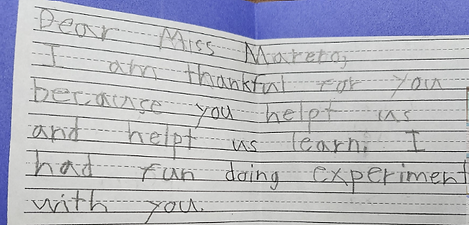 Dear Miss Mareto,
I am thankful for you
because you helpt us
and helpt us learn. I
had fun doing experiment
with you.